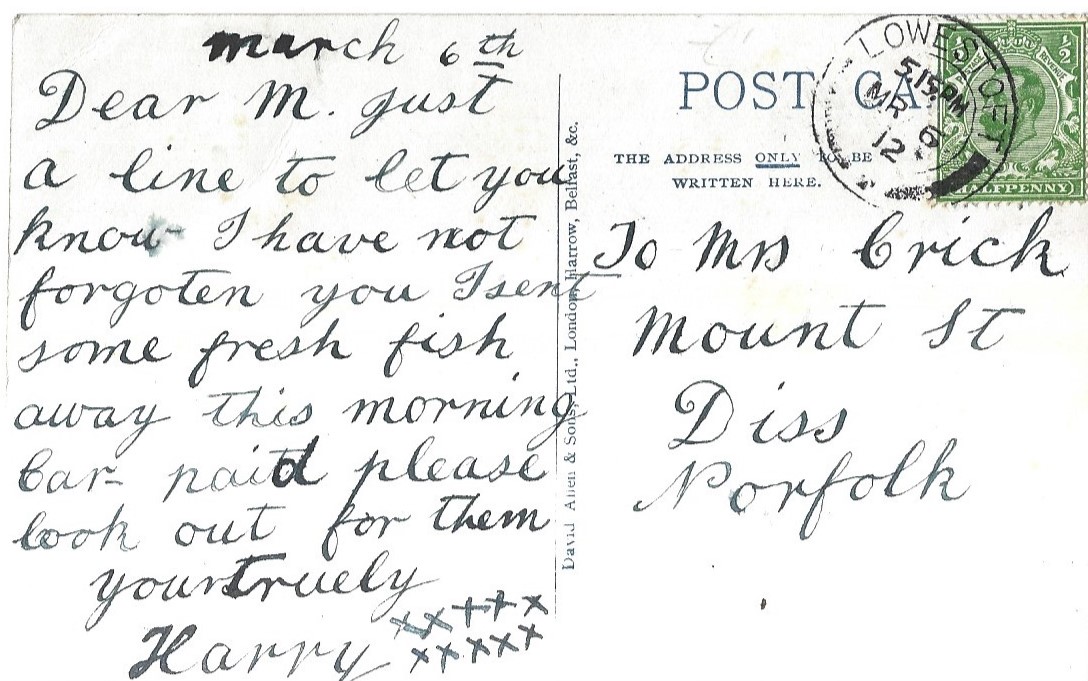 March 6th
Dear M. just
a line to let you
know I have not
forgoten you I sent
some fresh fish
away this morning
Car- paid please
look out for them
your truely
Harry xx+++x
xxxxx
David Allen & Sons, Ltd., London, Harrow, Belfast, &c.
POST CA
THE ADDRESS ONLY TO BE
WRITTEN HERE.
LOWESTOFT
5.15PM
MR 6
12
HALFPENNY
To Mrs Crick
Mount St
Diss
Norfolk